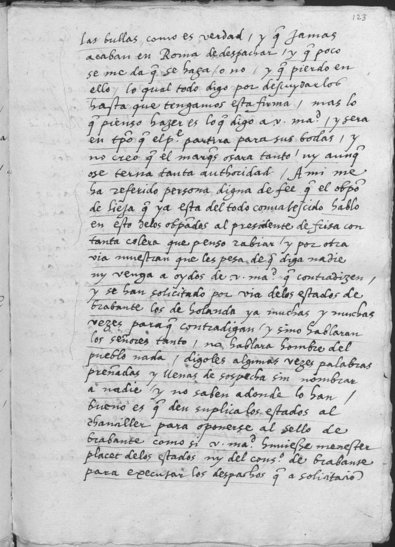 123
las bullas como es verdad / y q̃ Jamas
acaban en Roma de despachar / y q̃ poco
se me da q̃ se haga / o no / y q̃ pierdo en
ello / lo qual todo digo por descuydarlos
hasta que tengamos esta firma / mas lo
q̃ pienso hazer es lo q̃ digo a v. mad / y sera
en tpõ q̃ el pe partira para sus bodas / y
no creo q̃ el marq̃s osara tanto / ny aunq̃
se terna tanta authoridad / A mi me
ha referido persona digna de fee q̃ el obpõ
de lieja q̃ ya esta del todo convalescido hablo
en esto delos obpãdos al presidente de frisa con
tanta colera que penso rabiar / y por otra
via muestran que les pesa de q̃ diga nadie
ny venga a oydos de v. mad q̃ contradizen /
y se han solicitado por via delos estados de
brabante los de holanda ya muchas y muchas
vezes para q̃ contradigan / y sino hablaran
los señores tanto / no hablara hombre del
pueblo nada / digoles algunas vezes palabras
preñadas y llenas de sospecha sin nombrar
a nadie / y no saben adonde lo han /
bueno es q̃ den suplica los estados al
chanciller para oponerse al sello de
brabante como si v. mad huuiesse menester
placet delos estados ny del consº de brabante
para executar los despachos q̃ a solicitado